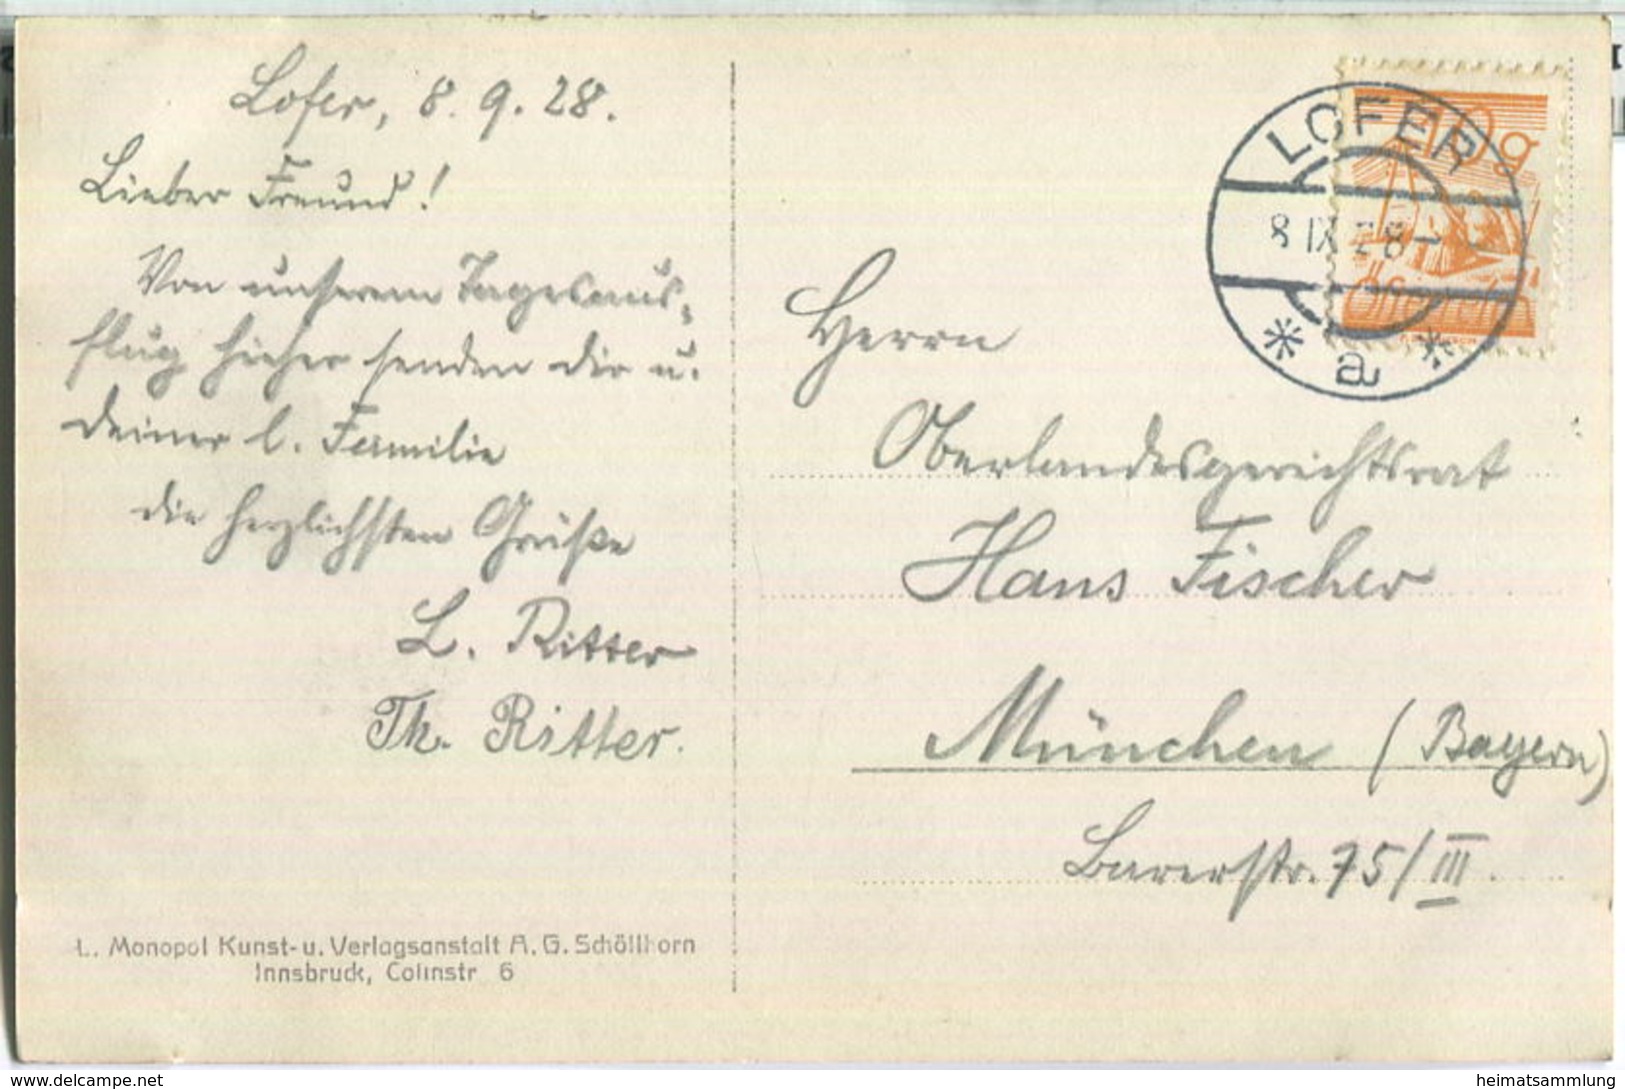 Lofer, 8. 9. 28.
Lieber Freund!
Von unserem Tagesaus-
flug hieher senden dir u.
deiner l. Familie
die herzlichsten Grüße
L. Ritter
Th. Ritter.
L. Monopol Kunst- u. Verlagsanstalt A. G. Schöllhorn
Innsbruck, Colinstr 6
LOFER
8 IX 28
* a *
10 g
Österreich
Herrn
Oberlandesgerichtsrat
Hans Fischer
München (Bayern)
Barerstr. 75/III.
delcampe.net
heimatsammlung